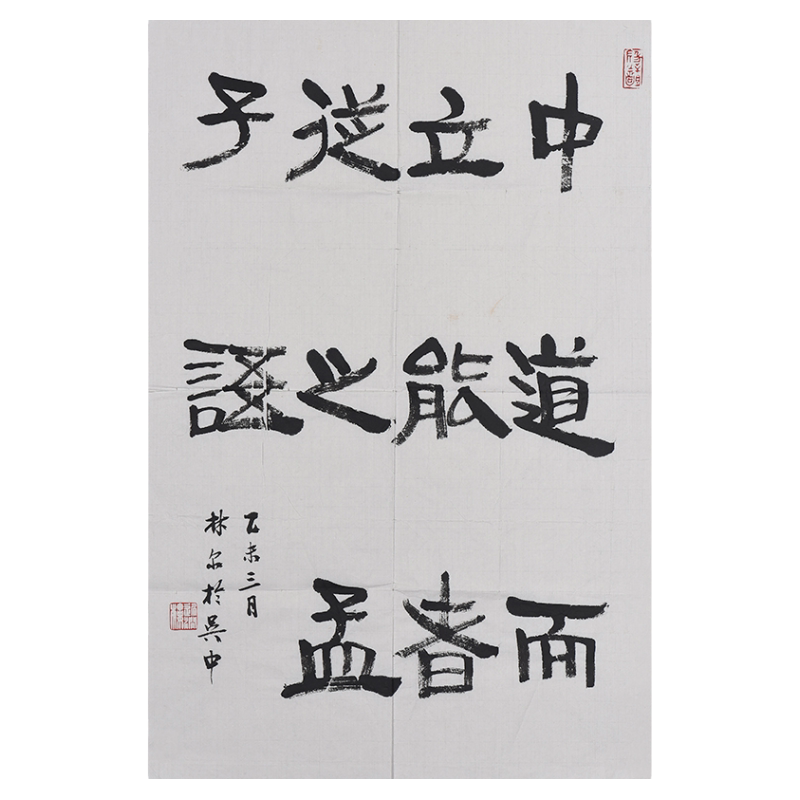 中道而
立能者
從之孟
子語
乙未三月
林尔於吳中